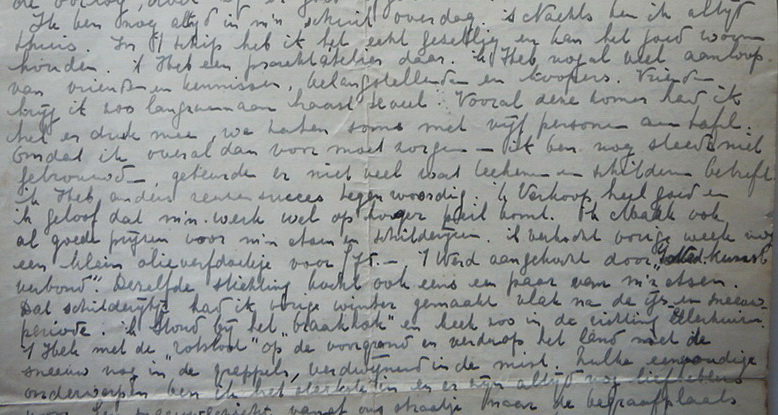 Ik ben nog altijd in m'n schuit overdag. 's Nachts ben ik altijd
thuis. In 't schip heb ik het echt gezellig en kan het goed warm
houden. 't Heb een prachtatelier daar. ik Heb nogal veel aanloop
van vrienden en kennissen, belangstellenden en koopers. Vrienden
krijg ik zoo langzaamaan haast te veel. Vooral deze zomer had ik
het er druk mee, we zaten soms met vijf personen aan tafel.
Omdat ik overal dan voor moet zorgen – ik ben nog steeds niet
getrouwd, gebeurde er niet veel wat teekenen en schilderen betreft
ik Heb anders succes tegenwoordig. ik Verkoop heel goed en
ik geloof dat m'n werk wel op hooger peil komt. Ik Maak ook
al goede prijzen voor m'n etsen en schilderijen. ik verkocht vorige week nog
een klein olieverfdoekje voor 75.– 't Werd aangekocht door
verbond". Dezelfde stichting kocht ook eens een paar van m'n etsen.
Dat schilderijtje had ik vorige winter gemaakt vlak na de ijs en sneeuw-
periode. ik Stond bij het „braakhok" en keek zoo in de richting Ellerhuizen.
't Hek met de op de voorgrond en verderop het land met de
sneeuw nog in de greppels, verdwijnend in de mist. Zulke eenvoudige
onderwerpen ben ik het sterkste in en er zijn altijd nog liefhebbers
voor. vanaf ons straatje naar de begraafplaats